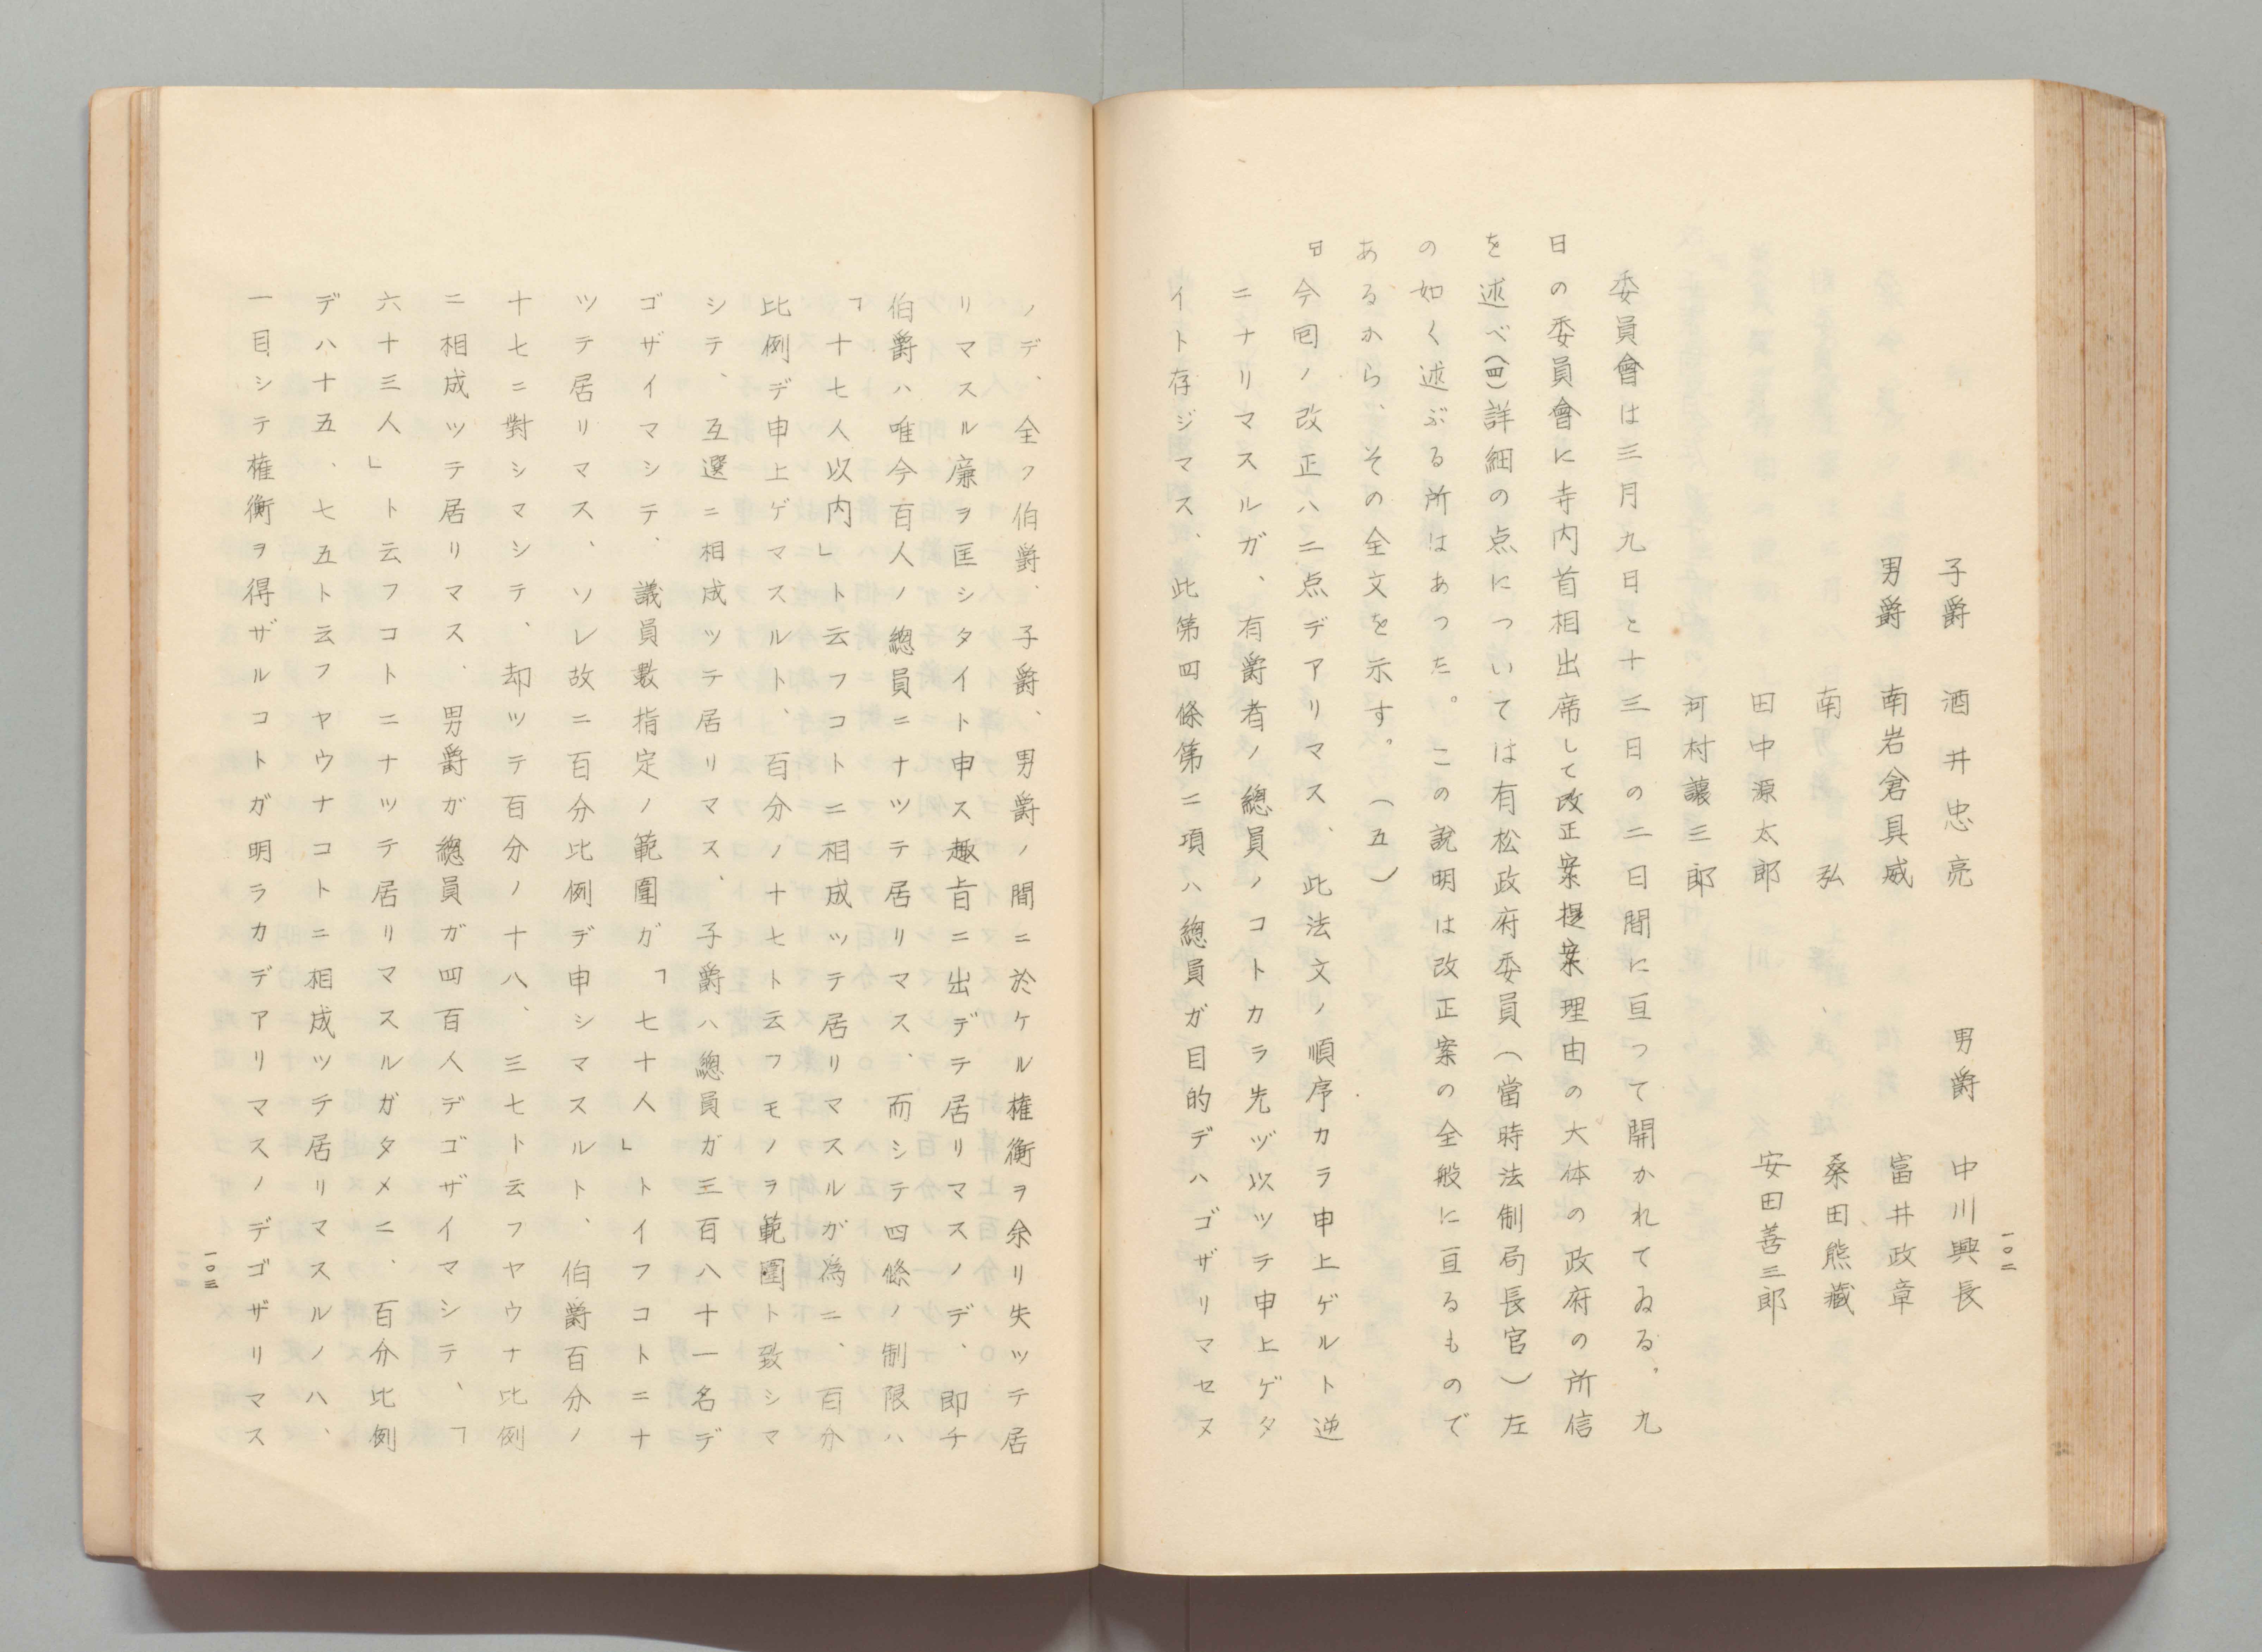 一〇二
子爵 酒井忠亮 男爵 中川興長
男爵 南岩倉具威 富井政章
南 弘 桑田熊藏
田中源太郎 安田善三郎
河村讓三郎
委員會は三月九日と十三日の二日間に亘って開かれてゐる。九
日の委員會に寺内首相出席して改正案提案理由の大体の政府の所信
を述べ(四)詳細の点については有松政府委員(當時法制局長官)左
の如く述ぶる所はあった。この説明は改正案の全般に亘るもので
あるから、その全文を示す。(五)
今囘ノ改正ハ二点デアリマス、此法文ノ順序カラ申上ゲルト逆
ニナリマスルガ、有爵者ノ總員ノコトカラ先ヅ以ツテ申上ゲタ
イト存ジマス、此第四條第二項ハ總員ガ目的デハゴザリマセヌ
ノデ、全ク伯爵、子爵、男爵ノ間ニ於ケル権衡ヲ余リ失ツテ居
リマスル廉ヲ匡シタイト申ス趣旨ニ出デテ居リマスノデ、即チ
伯爵ハ唯今百人ノ總員ニナツテ居リマス、而シテ四條ノ制限ハ
「十七人以内」ト云フコトニ相成ツテ居リマスルガ為ニ、百分
比例デ申上ゲマスルト、百分ノ十七ト云フモノヲ範圍ト致シマ
シテ、互選ニ相成ツテ居リマス、子爵ハ總員ガ三百八十一名デ
ゴザイマシテ、議員數指定ノ範圍ガ「七十人」トイフコトニナ
ツテ居リマス、ソレ故ニ百分比例デ申シマスルト、伯爵百分ノ
十七ニ對シマシテ、却ツテ百分ノ十八、三七ト云フヤウナ比例
ニ相成ツテ居リマス、男爵ガ總員ガ四百人デゴザイマシテ、「
六十三人」ト云フコトニナツテ居リマスルガタメニ、百分比例
デハ十五、七五ト云フヤウナコトニ相成ツテ居リマスルノハ、
一目シテ権衡ヲ得ザルコトガ明ラカデアリマスノデゴザリマス
一〇三